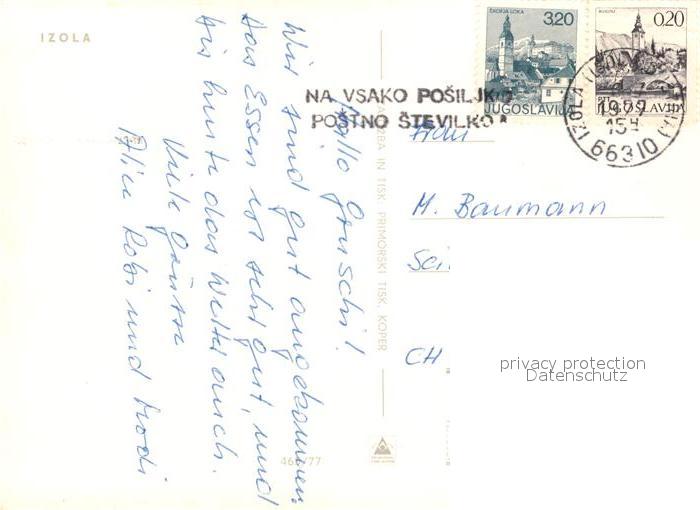 IZOLA
Hallo Gruschi!
Wir sind gut angekommen
das Essen ist sehr gut, und
bis heute das Wetter auch.
Viele Grüsse
Alice Robi und
NA VSAKO POŠILJKO
POŠTNO ŠTEVILKO
ŠKOFJA LOKA
3,20
JUGOSLAVIJA
0,20
JUGOSLAVIJA
IZOLA
15H
66310
IN TISK PRIMORSKI TISK, KOPER
Frau
M. Baumann
CH
privacy protection
Datenschutz